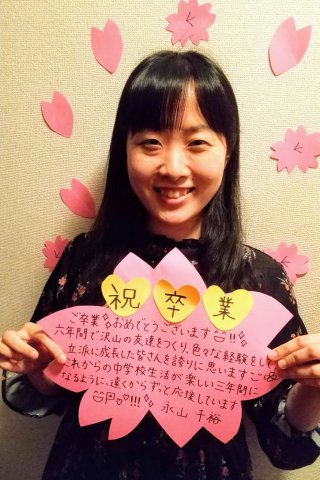 祝卒業
ご卒業おめでとうございます!!
六年間で沢山の友達をつくり、色々な経験をし
立派に成長した皆さんを誇りに思いますご
これからの中学校生活が楽しい三年間に
なるように、遠くからずっと応援しています
!!! 永山 千裕